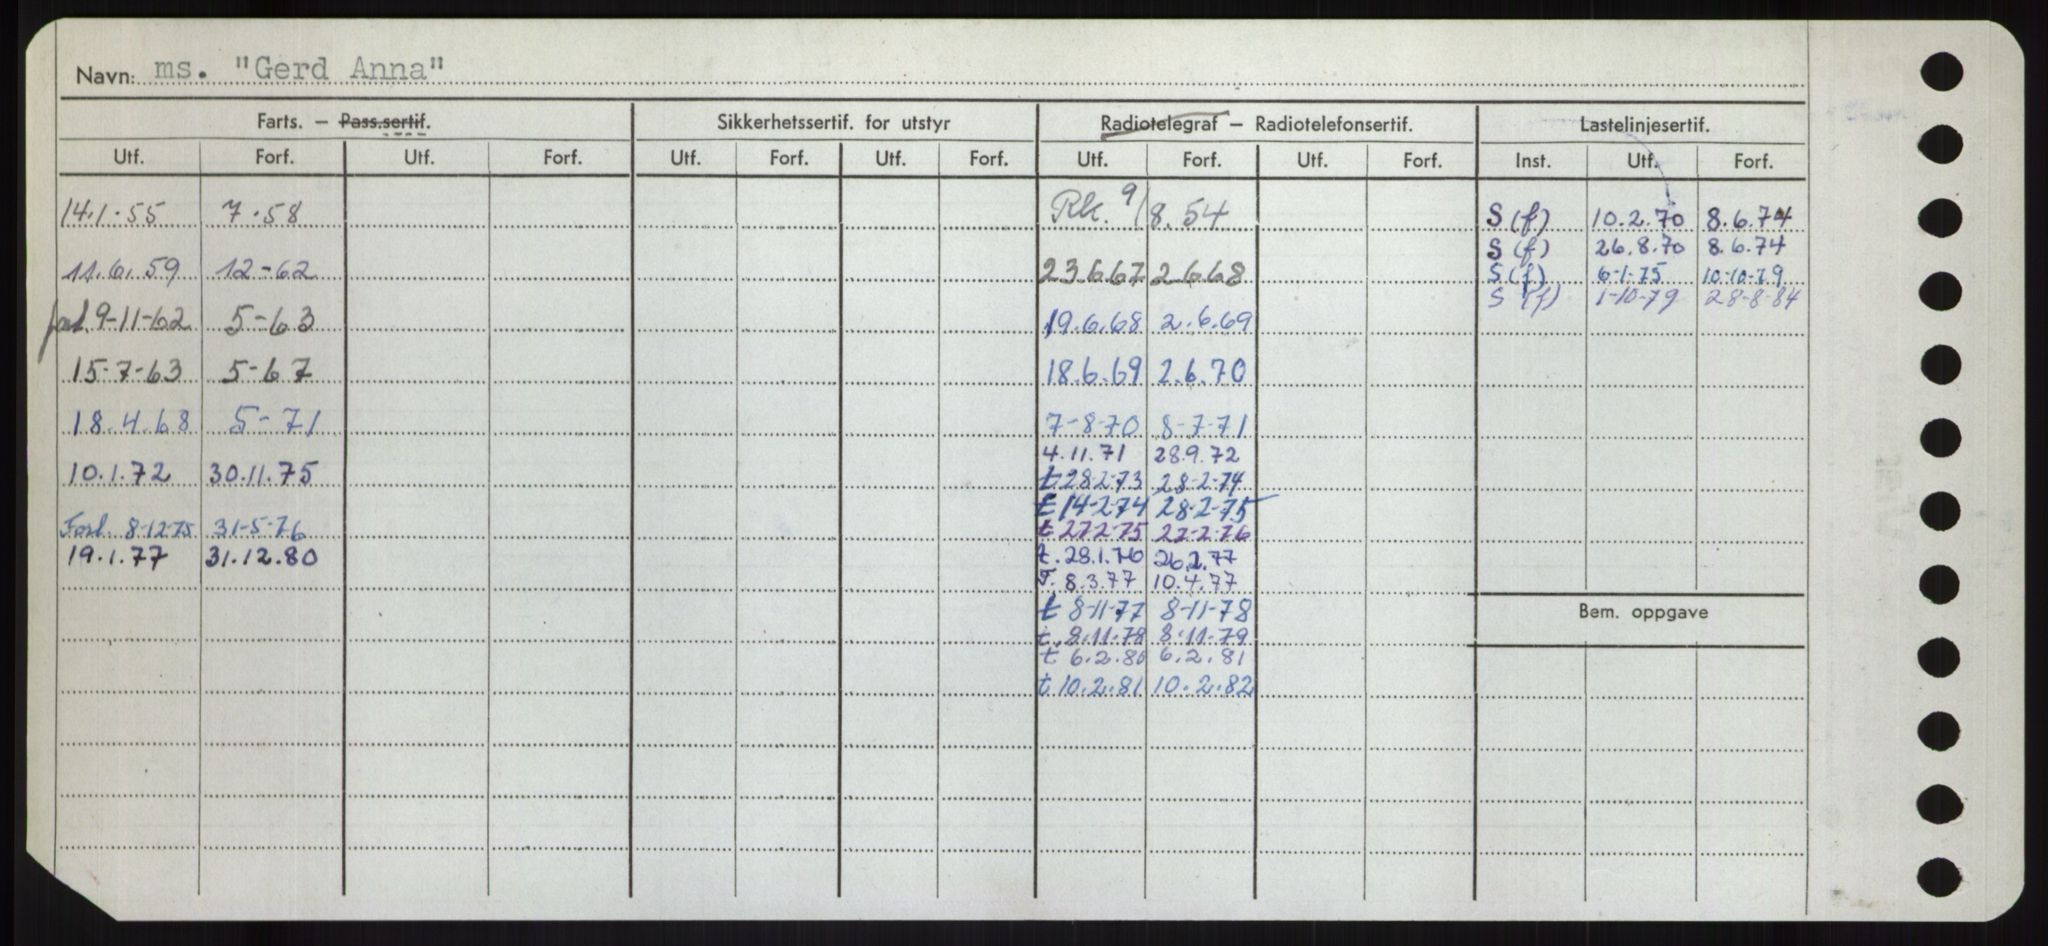 Navn: ms. "Gerd Anna"
Farts. — Pass.sertif. Sikkerhetssertif. for utstyr Radiotelegraf — Radiotelefonsertif. Lastelinjesertif.
Utf. Forf. Utf. Forf. Utf. Forf. Utf. Forf. Utf. Forf. Utf. Forf. Inst. Utf. Forf.
14.1.55 7.58 Rk. 9/8.54 S (f) 10.2.70 8.6.74
S (f) 26.8.70 8.6.74
11.6.59 12-62 23.6.67 2.6.68 S (f) 6-1-75 10-10-79
S (f) 1-10-79 28-8-84
forl. 9-11-62 5-63 19.6.68 2.6.69
15-7-63 5-67 18.6.69 2.6.70
18.4.68 5-71 7-8-70 8-7-71
4.11.71 28.9.72
10.1.72 30.11.75 t 28-2-73 28-2-74
t 14-2-74 28-2-75
Forl. 8-12-75 31-5-76 t 27-2-75 27-2-76
19.1.77 31.12.80 t. 28.1.76 26.2.77
T. 8.3.77 10.4.77
t 8-11-77 8-11-78
Bem. oppgave
t. 8.11.78 8.11.79
t 6.2.80 6.2.81
t 10.2.81 10.2.82